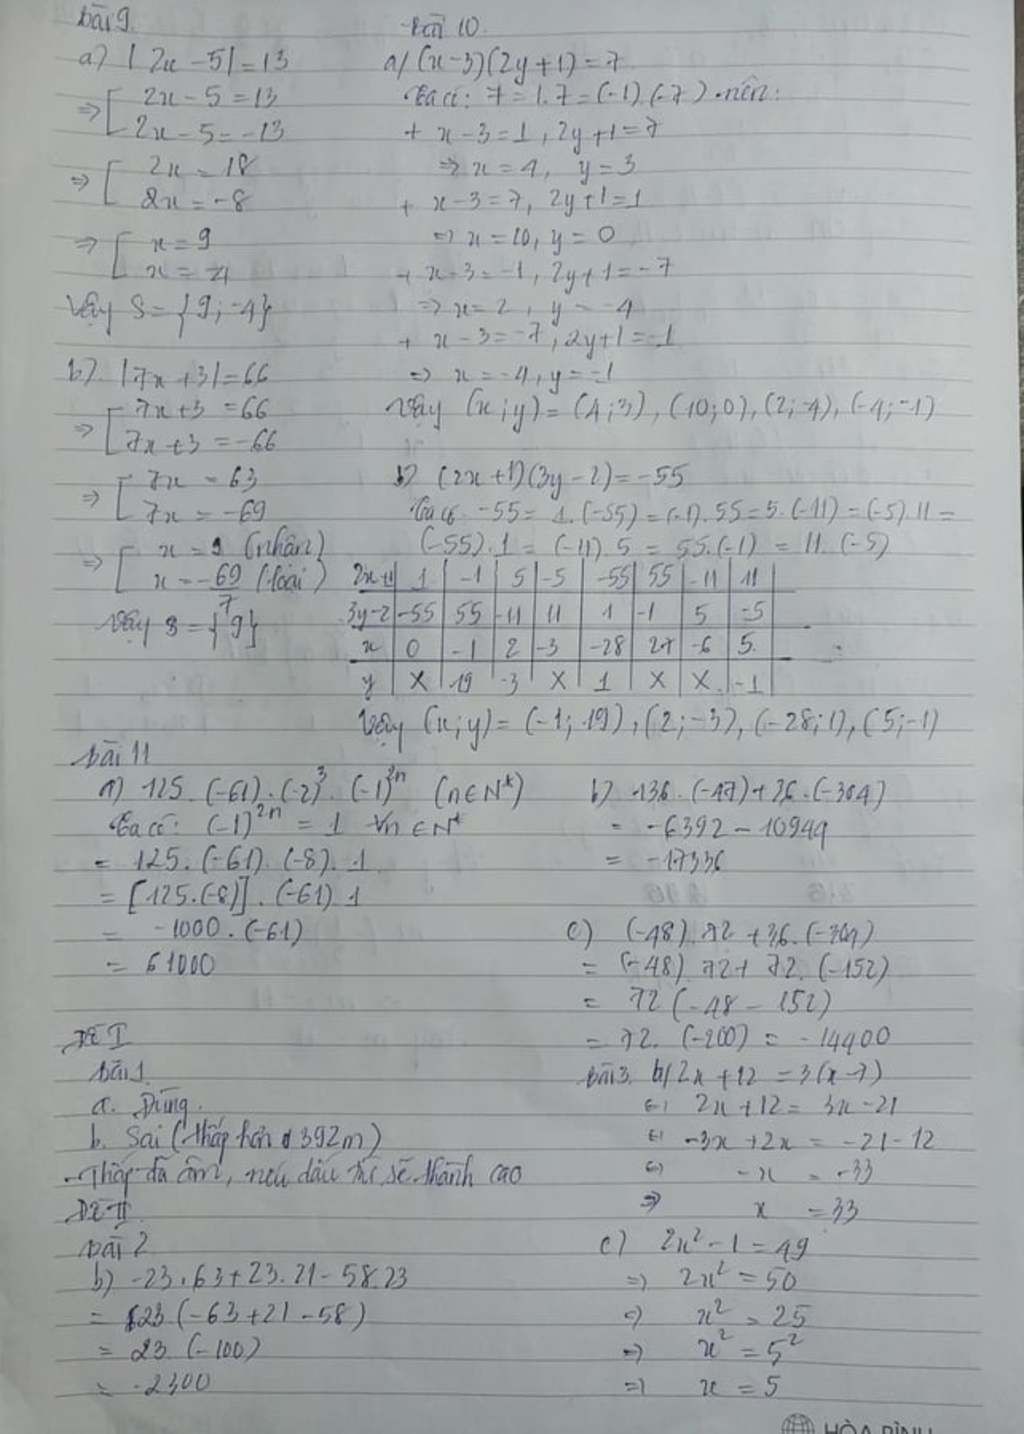 Bài 9.
a) |2x - 5| = 13
⇒ [ 2x - 5 = 13
2x - 5 = -13
⇒ [ 2x = 18
2x = -8
⇒ [ x = 9
x = -4
Vậy S = {9; -4}
b) |7x + 3| = 66
⇒ [ 7x + 3 = 66
7x + 3 = -66
⇒ [ 7x = 63
7x = -69
⇒ [ x = 9 (nhận)
x = -69/7 (loại)
Vậy S = {9}
Bài 10.
a/ (x-3)(2y+1) = 7
Ta có: 7 = 1.7 = (-1).(-7) nên:
+ x-3 = 1, 2y+1 = 7
⇒ x = 4, y = 3
+ x-3 = 7, 2y+1 = 1
⇒ x = 10, y = 0
+ x-3 = -1, 2y+1 = -7
⇒ x = 2, y = -4
+ x-3 = -7, 2y+1 = -1
⇒ x = -4, y = -1
Vậy (x;y) = (4;3), (10;0), (2;-4), (-4;-1)
b) (2x+1)(3y-2) = -55
Ta có -55 = 1.(-55) = (-1).55 = 5.(-11) = (-5).11 =
(-55).1 = (-11).5 = 55.(-1) = 11.(-5)
2x+1 | 1 | -1 | 5 | -5 | -55 | 55 | -11 | 11
3y-2 | -55 | 55 | -11 | 11 | 1 | -1 | 5 | -5
x | 0 | -1 | 2 | -3 | -28 | 27 | -6 | 5
y | X | 19 | -3 | X | 1 | X | X | -1
Vậy (x;y) = (-1; 19), (2; -3), (-28; 1), (5; -1)
Bài 11
a) 125.(-61).(-2)³.(-1)²ⁿ (n∈N*)
Ta có: (-1)²ⁿ = 1 ∀n∈N*
= 125.(-61).(-8).1
= [125.(-8)].(-61).1
= -1000.(-61)
= 61000
b) 136.(-47)+36.(-304)
= -6392 - 10944
= -17336
c) (-48).72 + 36.(-304)
= (-48).72 + 72.(-152)
= 72(-48 - 152)
= 72.(-200) = -14400
ĐỀ I
Bài 1.
a. Đúng.
b. Sai (thấp hơn 392m)
- Thấp đã âm, nếu dấu thì sẽ thành cao
ĐỀ II
Bài 2
b) -23.63 + 23.21 - 58.23
= 23(-63 + 21 - 58)
= 23.(-100)
= -2300
Bài 3. b/ 2x + 12 = 3(x-7)
⇔ 2x + 12 = 3x - 21
⇔ -3x + 2x = -21 - 12
⇔ -x = -33
⇒ x = 33
c) 2x² - 1 = 49
⇒ 2x² = 50
⇒ x² = 25
⇒ x² = 5²
⇒ x = 5
HÒA BÌNH